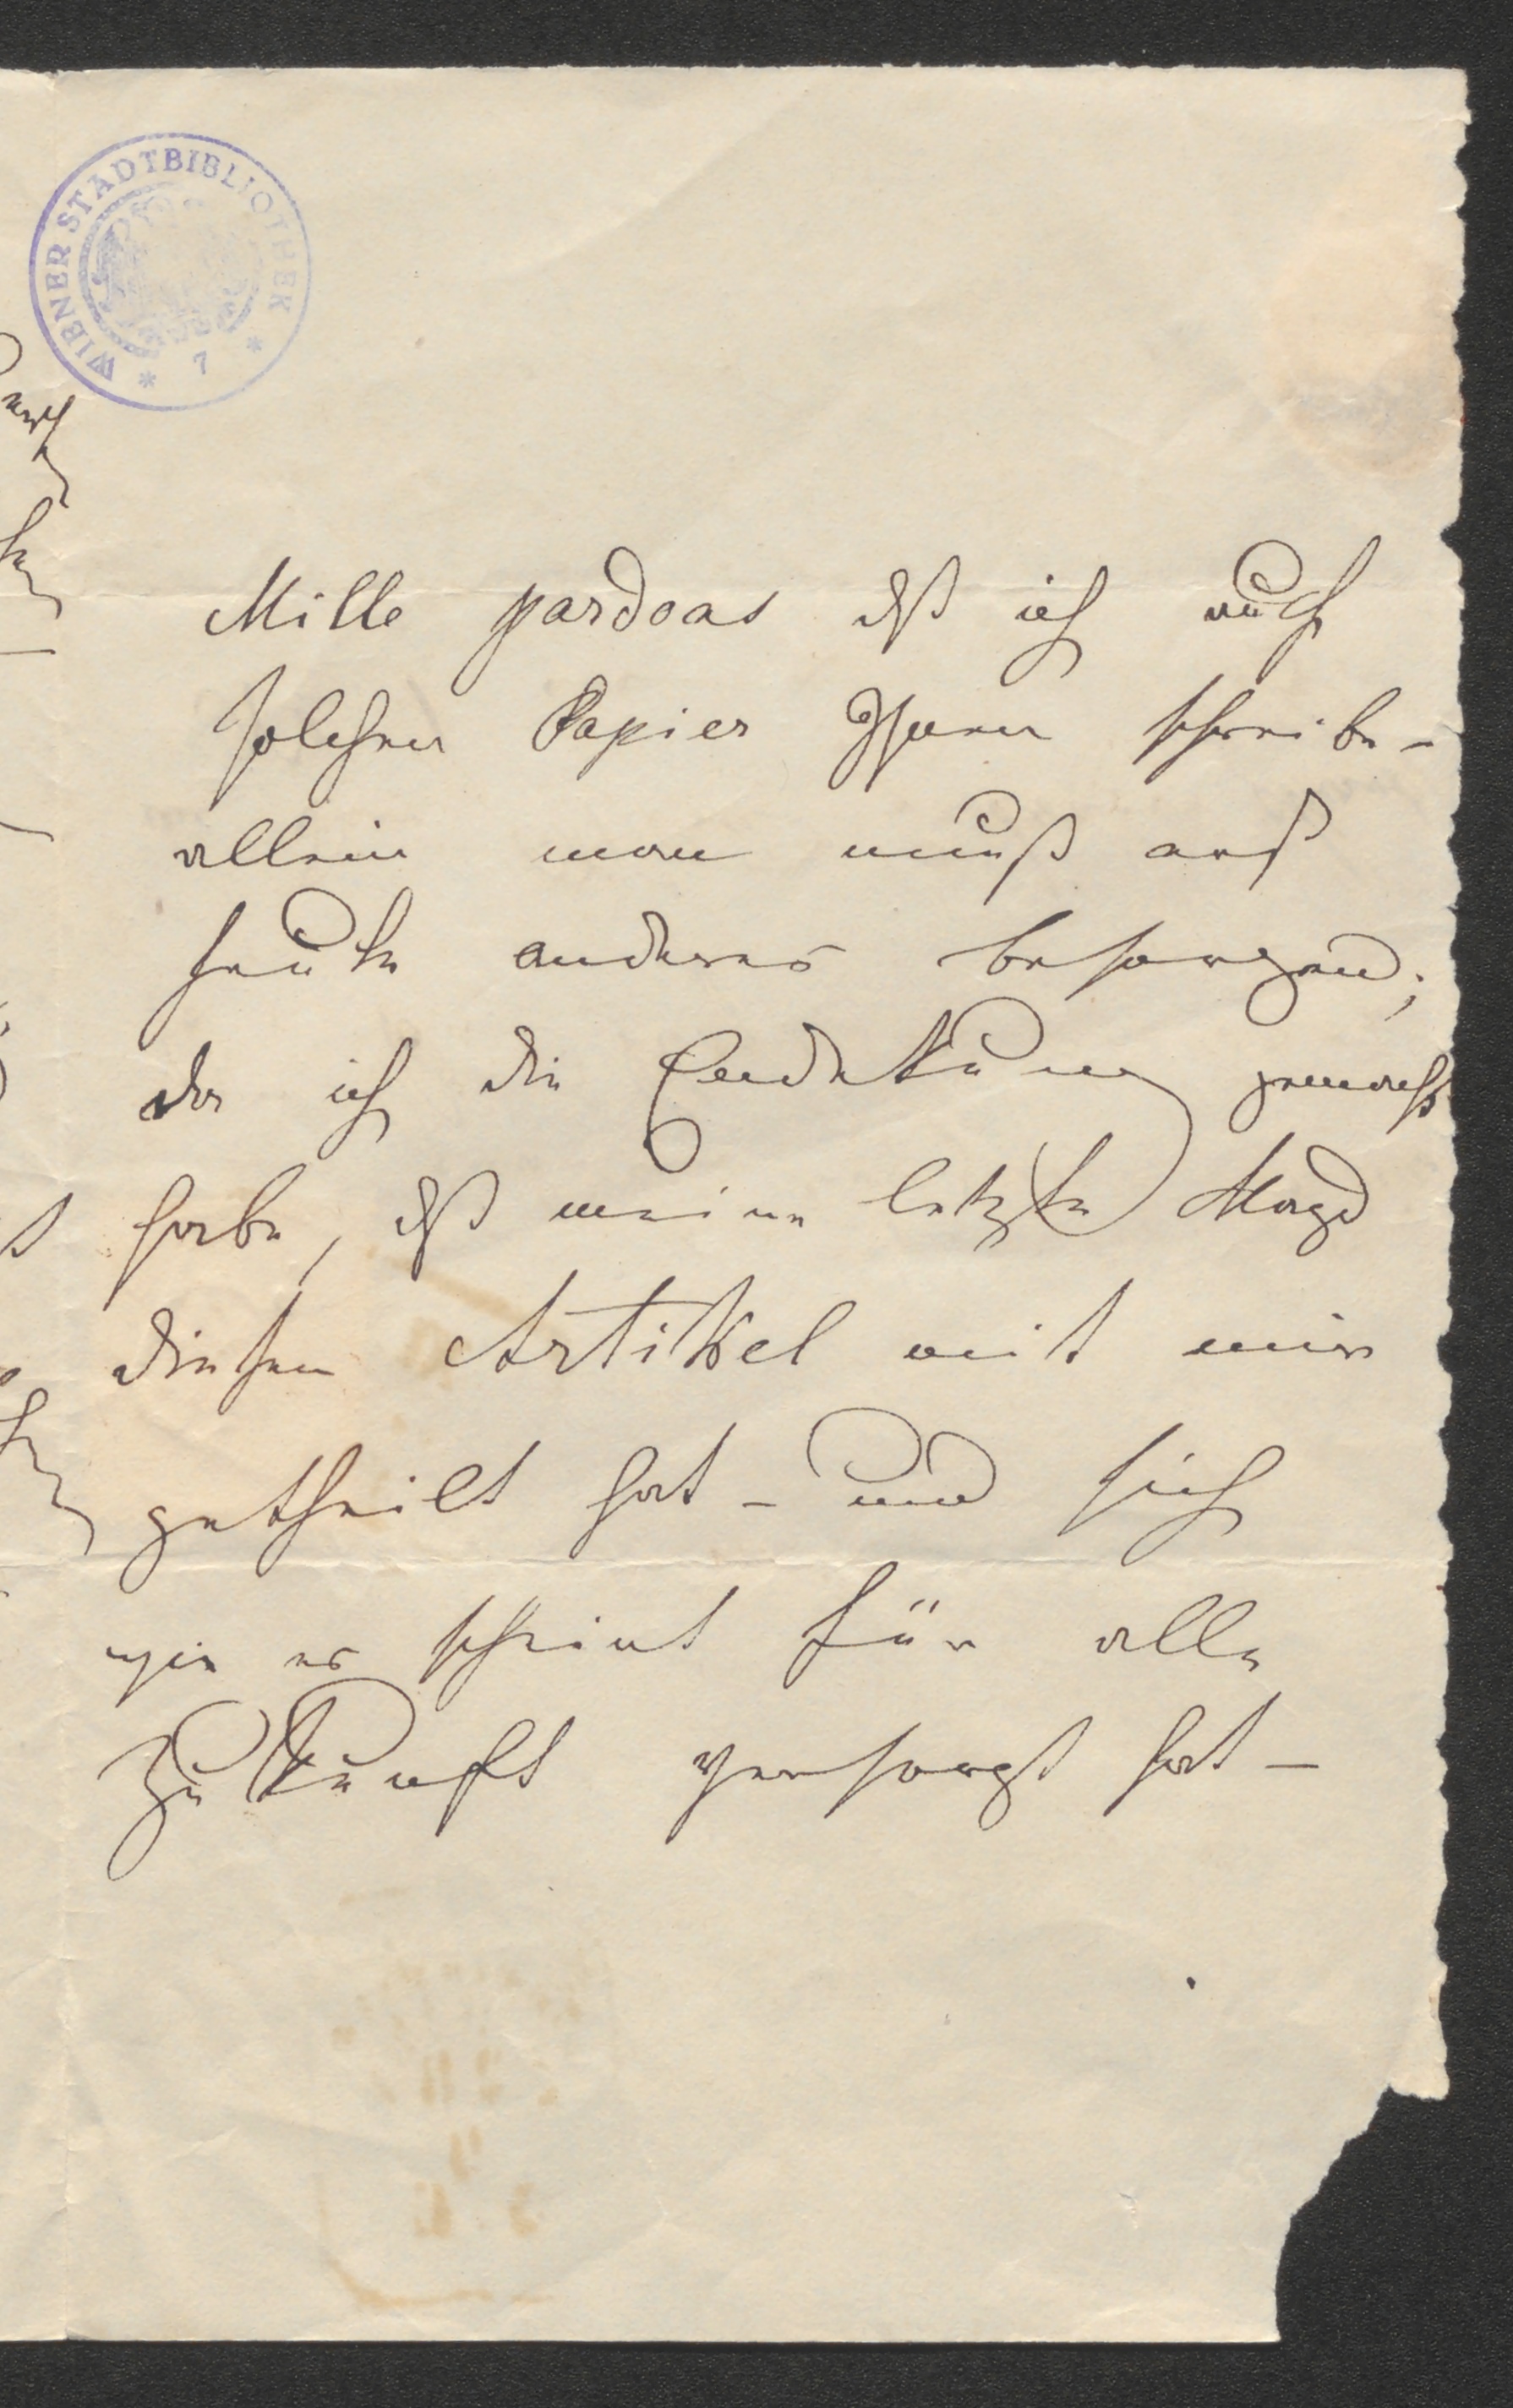 WIENER STADTBIBLIOTHEK
* 7 *
Mille pardons dß ich auf
solchem Papier Ihnen schreibe –
allein man muß erst
heute anderes besorgen;
da ich die Endekung gemacht
habe, dß meine letzte Magd
diesen Artikel mit mir
getheilt hat – und sich
wie es scheint für alle
Zukunft versorgt hat –